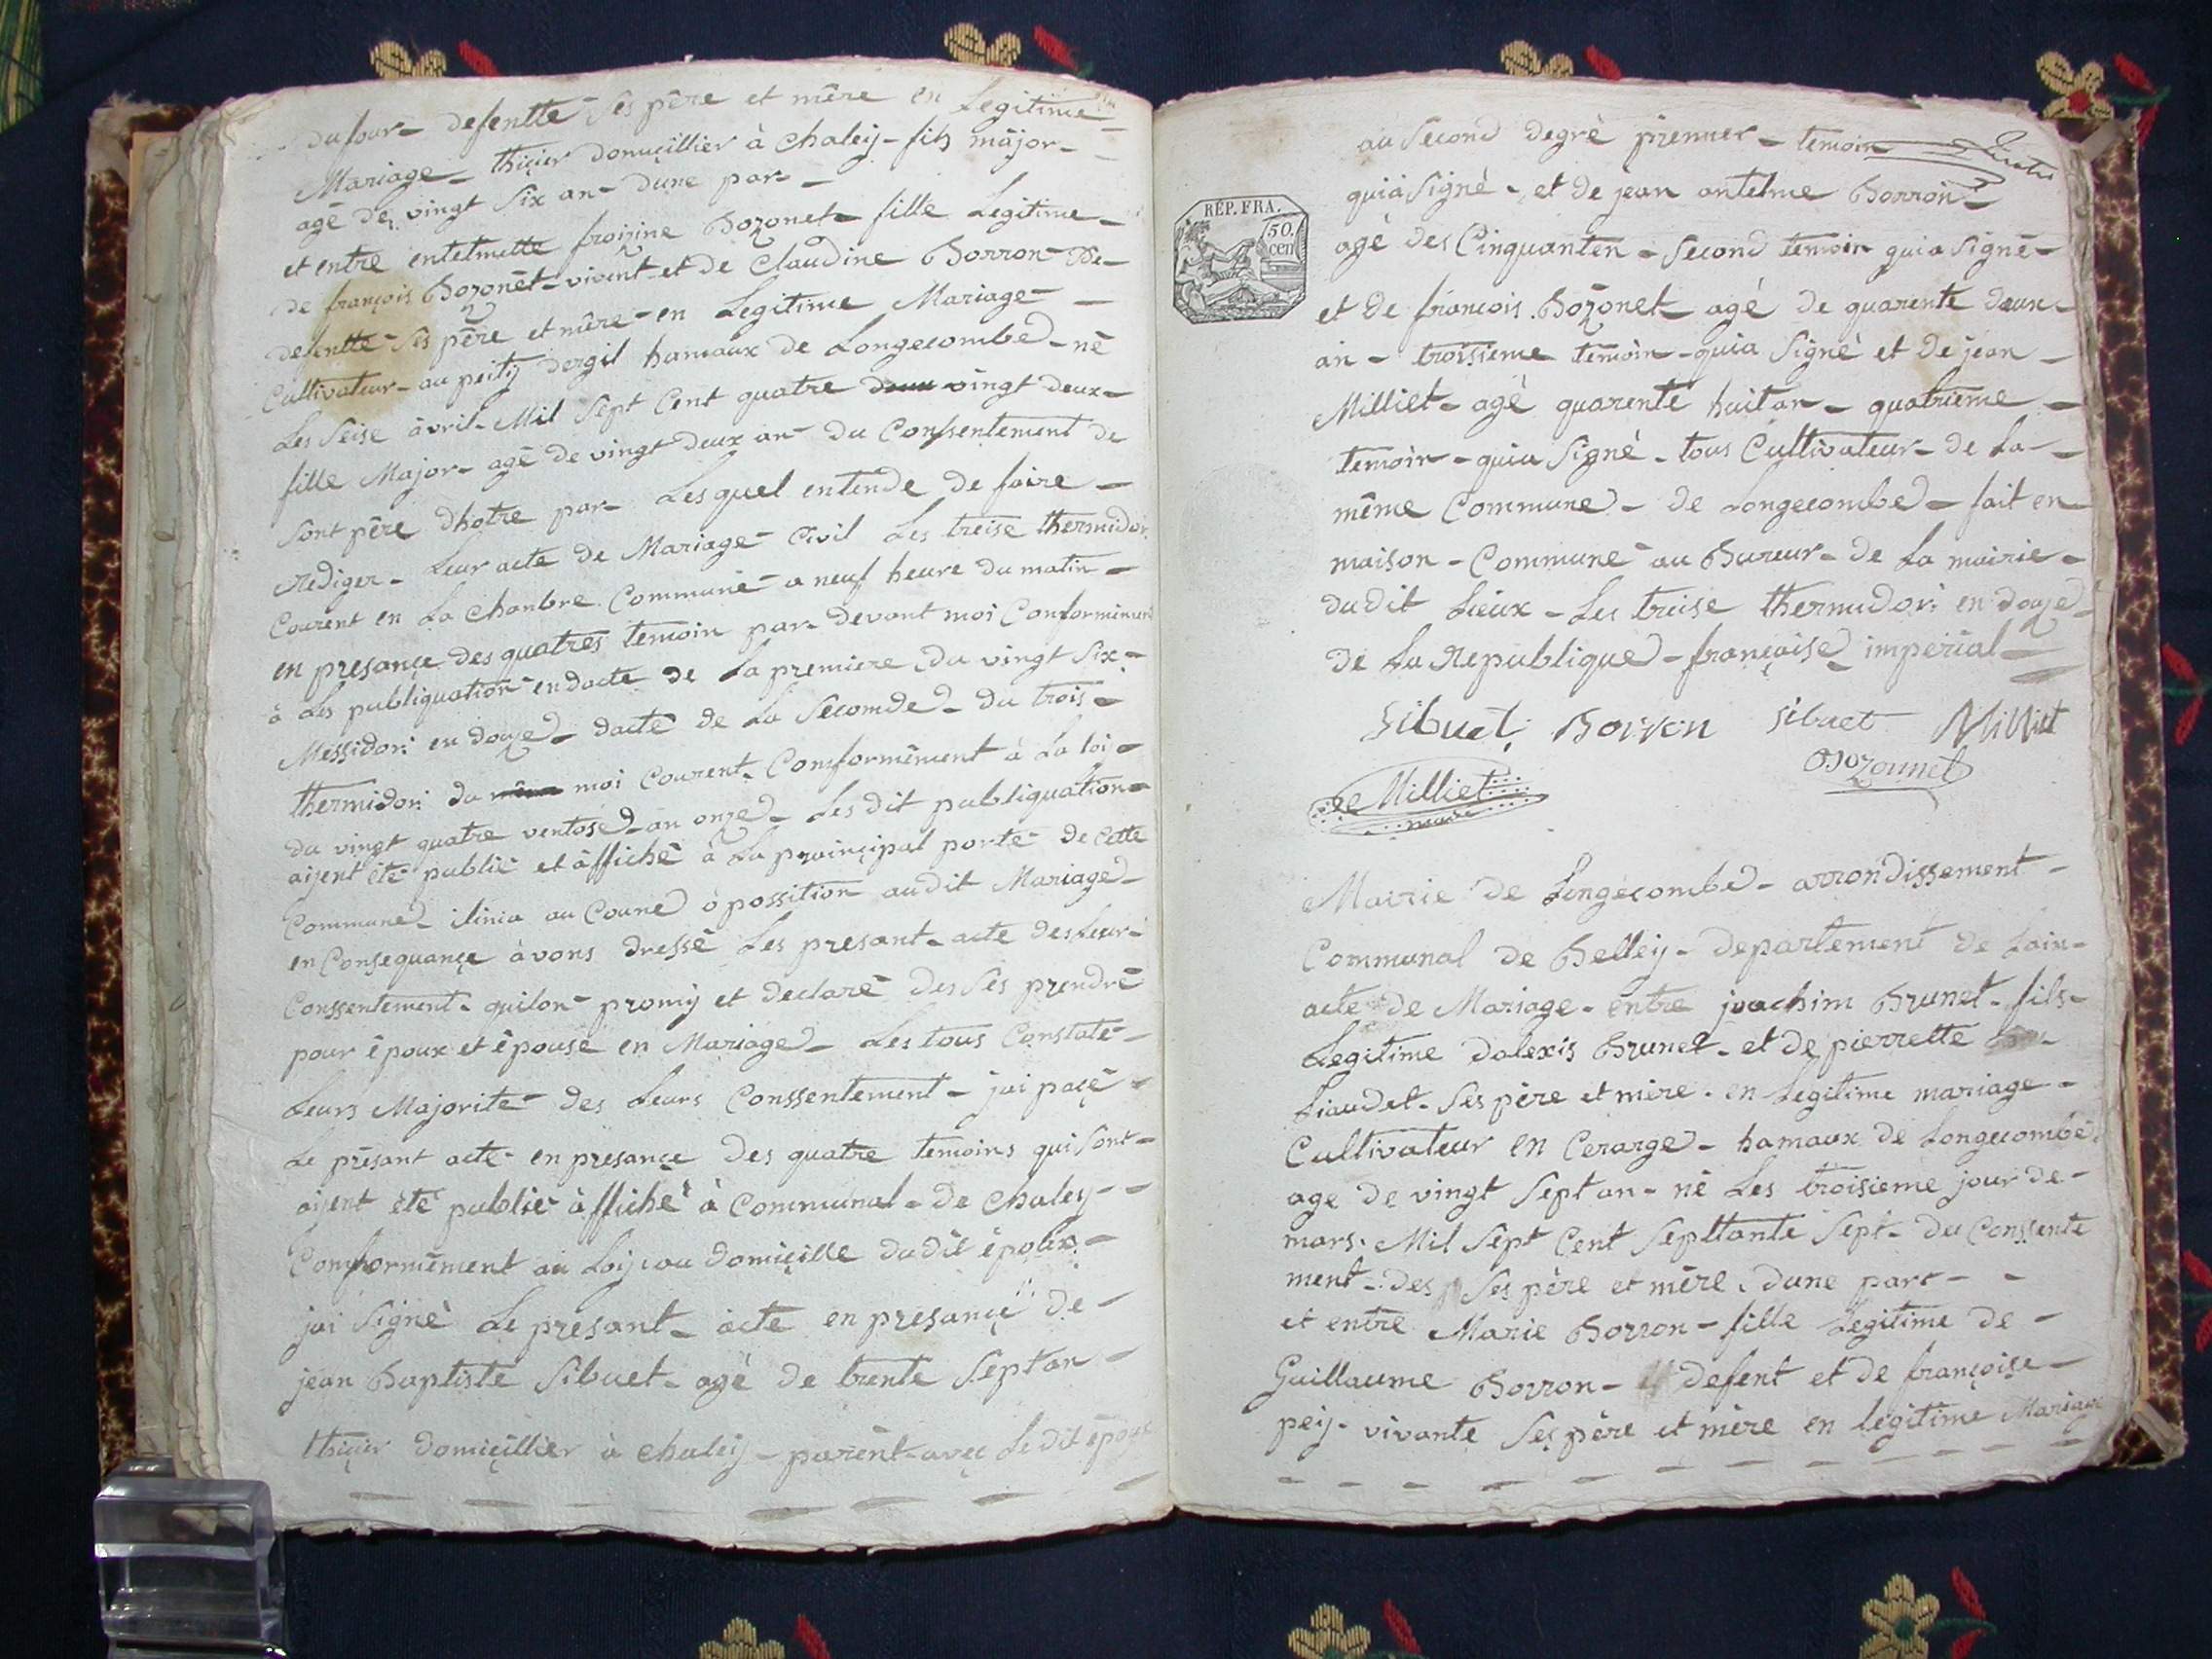 dufour - defentte Ses père et mêre en Legitime -
Mariage - thiçier domiçillier à Chaleij - fils màjor -
agé de vingt Six an - dune par -
et entre entelmette froizine Bozonet - fille Legitime -
de françois Bozonet - vivent - et de Claudine Borron De -
defentte - Ses père et mère - en Legitime Mariage -
Cultivateur - au peitij dergil hamaux de Longecombe - né
Les Seise àvril - Mil Sept Cent quatre vingt deux -
fille Major - agé de vingt deux an - du Conssentement de
Sont père dhotre par - Lesquel entende de faire -
Rediger - Leur acte de Mariage - Civil Les treise thermidor
Courent en La Chanbre Commune - a neuf heure du matin -
en presançe des quatres temoin par devant moi Conformement
à Les publiquation en dacte de La premiere du vingt Six -
Messidor en douze - dacte de La Secomde - du trois -
thermidor du moi Courent - Comformèment à La loi -
du vingt quatre ventose - an onze - Les dit publiquation -
aijent été publié et àffiché à La prainçipal porte - de Cette
Commune - ilinia au Coune òpossition audit Mariage -
en Consequançe àvons dressé Les presant - acte des Leur -
Conssentement - quilon - promij et declaré des Ses prendre
pour époux et épouse en Mariage - Les tous Constaté -
Leurs Majorité - des Leurs Conssentement - jai paçé -
Le présant acte - en presançe des quatre temoins qui Sont -
aijent été publié àffiché à Communal - de Chaleij - -
Comformèment au Loij au domiçille dudit époux -
jai Signé Le presant - acte en presançe de -
jean Baptiste Sibuet - agé de trente Sept an -
thiçier domiçillier à Chaleij - parènt - aveç Ledit époux
au Second degré premier - temoin
REP. FRA.
50. cen
quia Signé - et de jean antelme Borron -
agé des Cinquanten - Second temoin quia Signé -
et de francois Bozonet agé de quarente deux -
an - troisieme temoin - quia Signé et de jean -
Milliet - agé quarente huit an - quatrieme -
temoin - quia Signé - tous Cultivateur - de La -
même Commune - de Longecombe - fait en
maison - Commune au Bureur - de La mairie -
dudit Lieux - Les treise thermidor en douze -
de La Republique - françaisse impèrial -
Sibuet Borron Sibuet Milliet
Milliet Bozonnet
maire
Mairie de Longecombe - arrondissement -
Communal de Belleij - departement de Lain -
acte de Mariage - entre joachim Brunet - fils -
Legitime dalexis Brunet - et de pierrette
Liaudet - Ses père et mère - en Legitime mariage -
Cultivateur en Cerarge - hamaux de Longecombe
age de vingt Sept an - né Les troisieme jour de -
mars - Mil Sept Cent Septtante Sept - du Conssente
ment - des Ses père et mère - dune part - -
et entre Marie Borron - fille Legitime de -
Guillaume Borron - defent et de françoise -
peij - vivante Ses père et mère en legitime Mariage